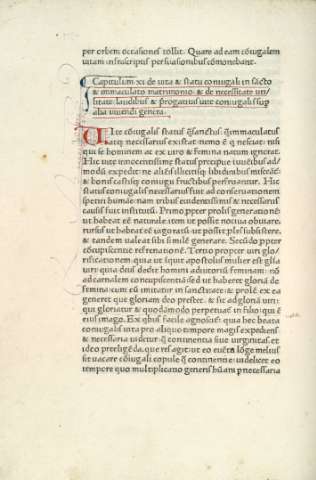 per orbem occasiones tollit. Quare ad eam cõiugalem
uitam infrascriptis persuasionibus cõmonebant.
Capitulum xi de uita & statu coniugali in sacto
& immaculato matrimonio & de necessitate uti/
litate laudibus & progatiuis uite coniugalis sup
alia uiuendi genera.
Uite cõiugalis status q̃ sanctus: q̃ immaculatus
atq; necessarius existat nemo é q nesciat: nisi
qui se hominem ac ex uiro & femina natum ignorat.
Hic uite innocentissime status precipue iuuenibus ad/
modũ expedit: ne aliis illicitisq; libidinibus misceãt̃:
& bonis castisq; coniugii fructibus perfruantur. Hic
status coniugalis necessarius fuit ad conseruationem
speciei humãe: nam tribus euidentissimis & necessariis
causis fuit institutus. Primo ppter prolis generationé:
ut habeat naturalem: ut possit nociua obuiare.
rursus ut habeat ea uigoratũ: ut possit ples subsistere,
& tandem ualeat sibi similé generare. Secũdo ppter
cõcupiscentie refrenationé. Tertio propter uiri glo/
rificationem. quia ut iquit apostolus mulier est glia
uiri: quia deus dedit homini adiutoriũ feminam: nõ
ad carnalem concupiscentiã: sed ut haberet gloriã de
femina: cum eã imitatur in sanctitate: & prolé ex ea
generet que gloriam deo prestet. & sit ad gloriã uiri:
qui gloriatur & quodãmodo perpetuat̃ in filio: qui é
eius imago. Ex qbus facile agnoscit̃: quia hec beata
coniugalis uita pro aliquo tempore magis expediens
& necessaria uidetur: q̃ continentia siue uirginitas. et
ideo preeligéda. que res agit̃: ut eo euétu lõge melius
sit uacare cõiugali copule q̃ continentie: uidelicet eo
tempore quo multiplicatio generis hũani p necessaria